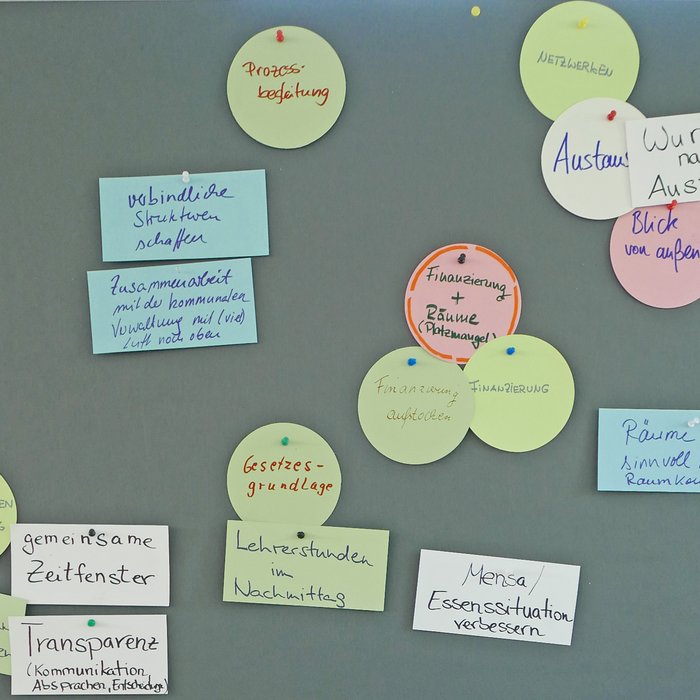 Prozess-
begleitung
NETZWERKEN
Austaus
Wur
na
Aus
Blick
von außen
verbindliche
Strukturen
schaffen
Zusammenarbeit
mit der kommunalen
Verwaltung mit (viel)
Luft nach oben
Finanzierung
+
Räume
(Platzmangel)
Finanzierung
aufstocken
FINANZIERUNG
Räume
sinnvoll
Raumkon
Gesetzes-
grundlage
Lehrerstunden
im
Nachmittag
EN
G
gemeinsame
Zeitfenster
Mensa/
Essenssituation
verbessern
Transparenz
(Kommunikation
Absprachen, Entscheidunge)